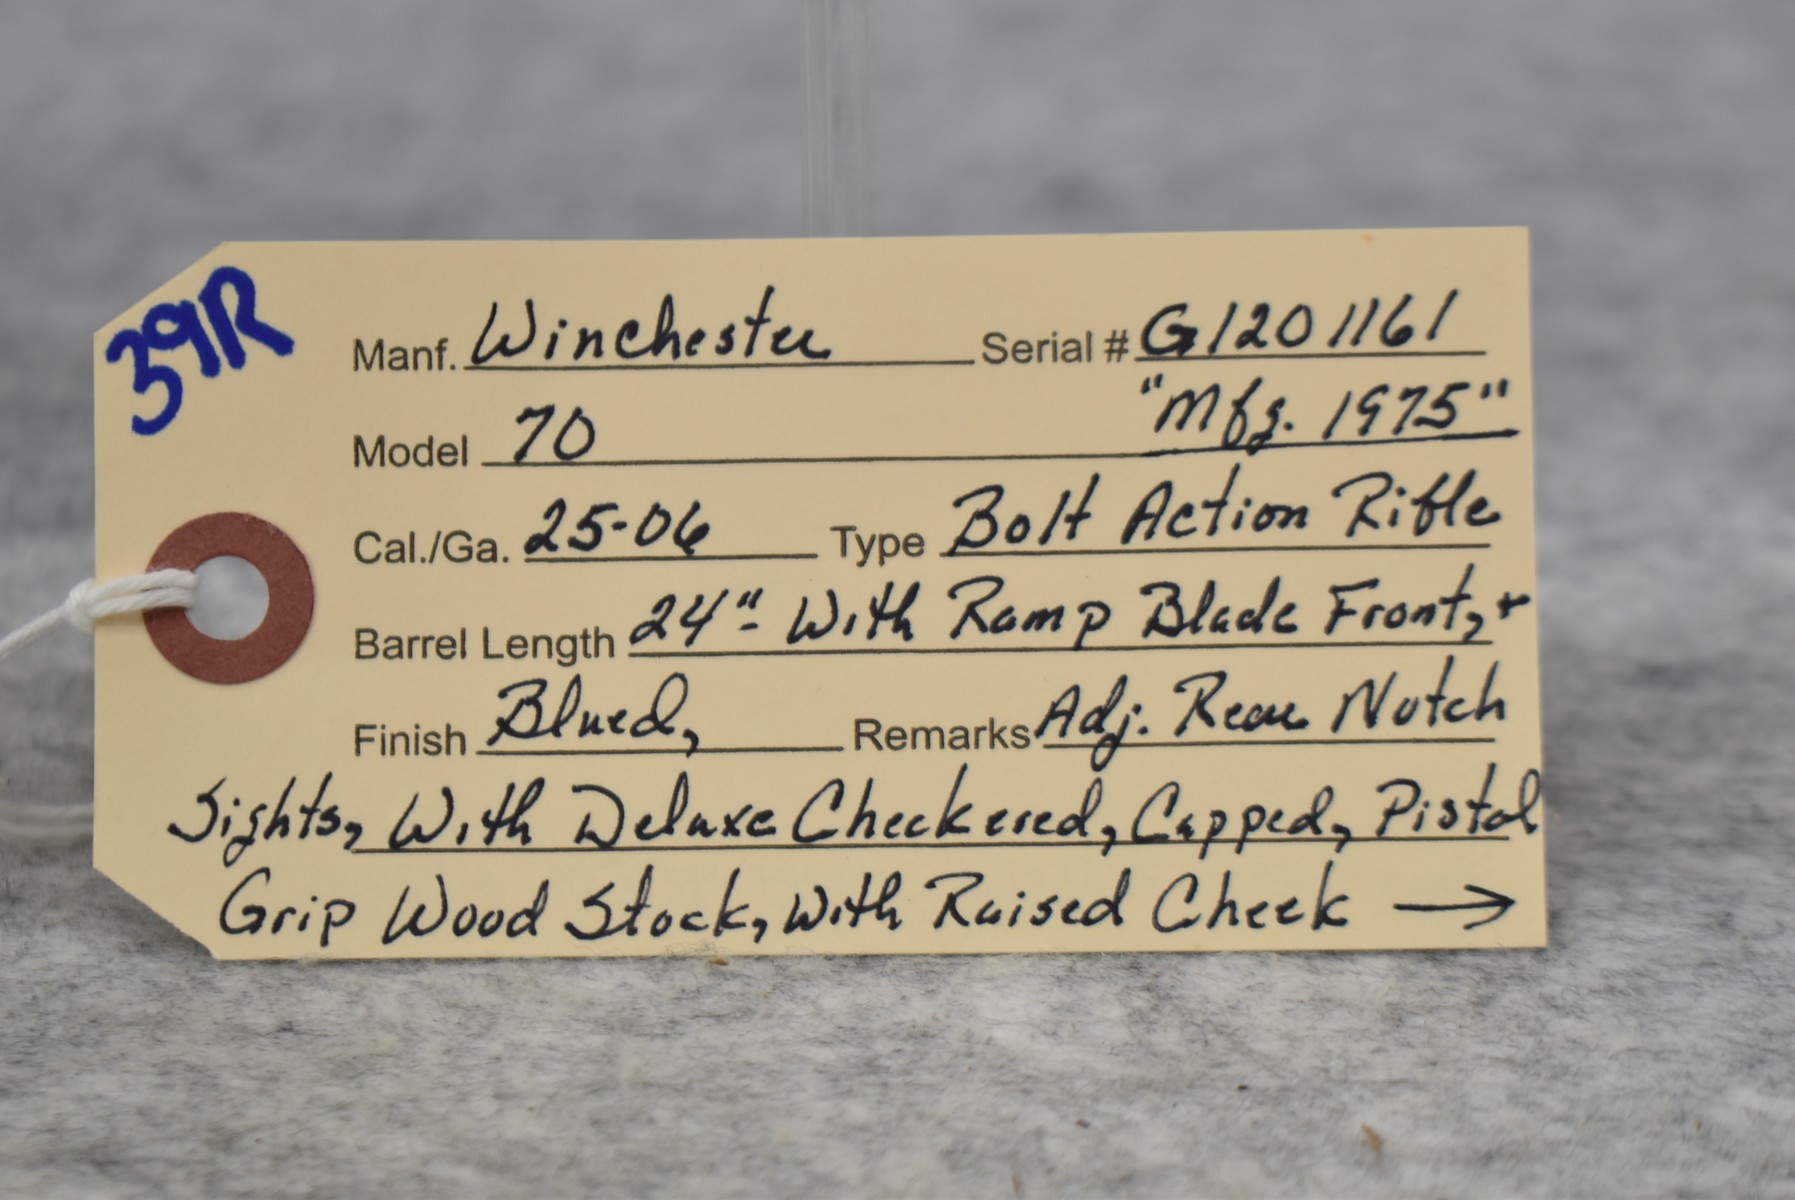 39R
Manf. Winchester Serial # G1201161
Model 70 "Mfg. 1975"
Cal./Ga. 25-06 Type Bolt Action Rifle
Barrel Length 24"- With Ramp Blade Front, +
Finish Blued, Remarks Adj. Rear Notch
Sights, With Deluxe Checkered, Capped, Pistol
Grip Wood Stock, With Raised Cheek →